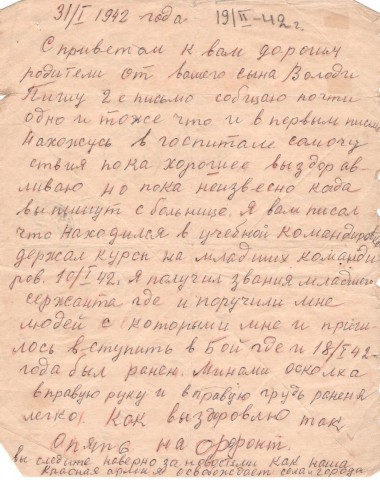 31/I 1942 года 19/II-42 г.
С приветам к вам дорогиы
родители от вашего сына Володи
Пишу 2 е письмо собщаю почти
одно и тоже что и в первым письми
Нахожусь в госпитале самочу
ствия пока хорошее выздорав
ливаю но пока неизвесно когда
выпишут с больнице. Я вам писал
что находился в учебной командиров
держал курсы на младших команди
ров. 10/I 42. Я получил звания младшего
сержанта где и поручили мне
людей с которыми мне и приш
лось вступить в Бой где и 18/I 42-
года был ранен. Минами осколка
в правую руку и в правую грудь ранен
легко. Как выздоровлю так
опять на фронт.
вы следите наверно за новостями как наша
красная армия освобождает села и города